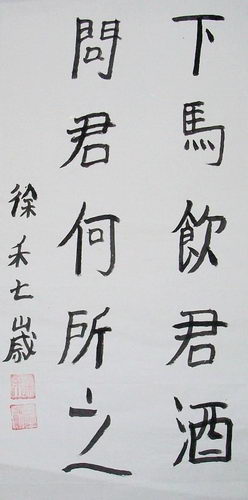 下馬飲君酒
問君何所之
徐禾七歲